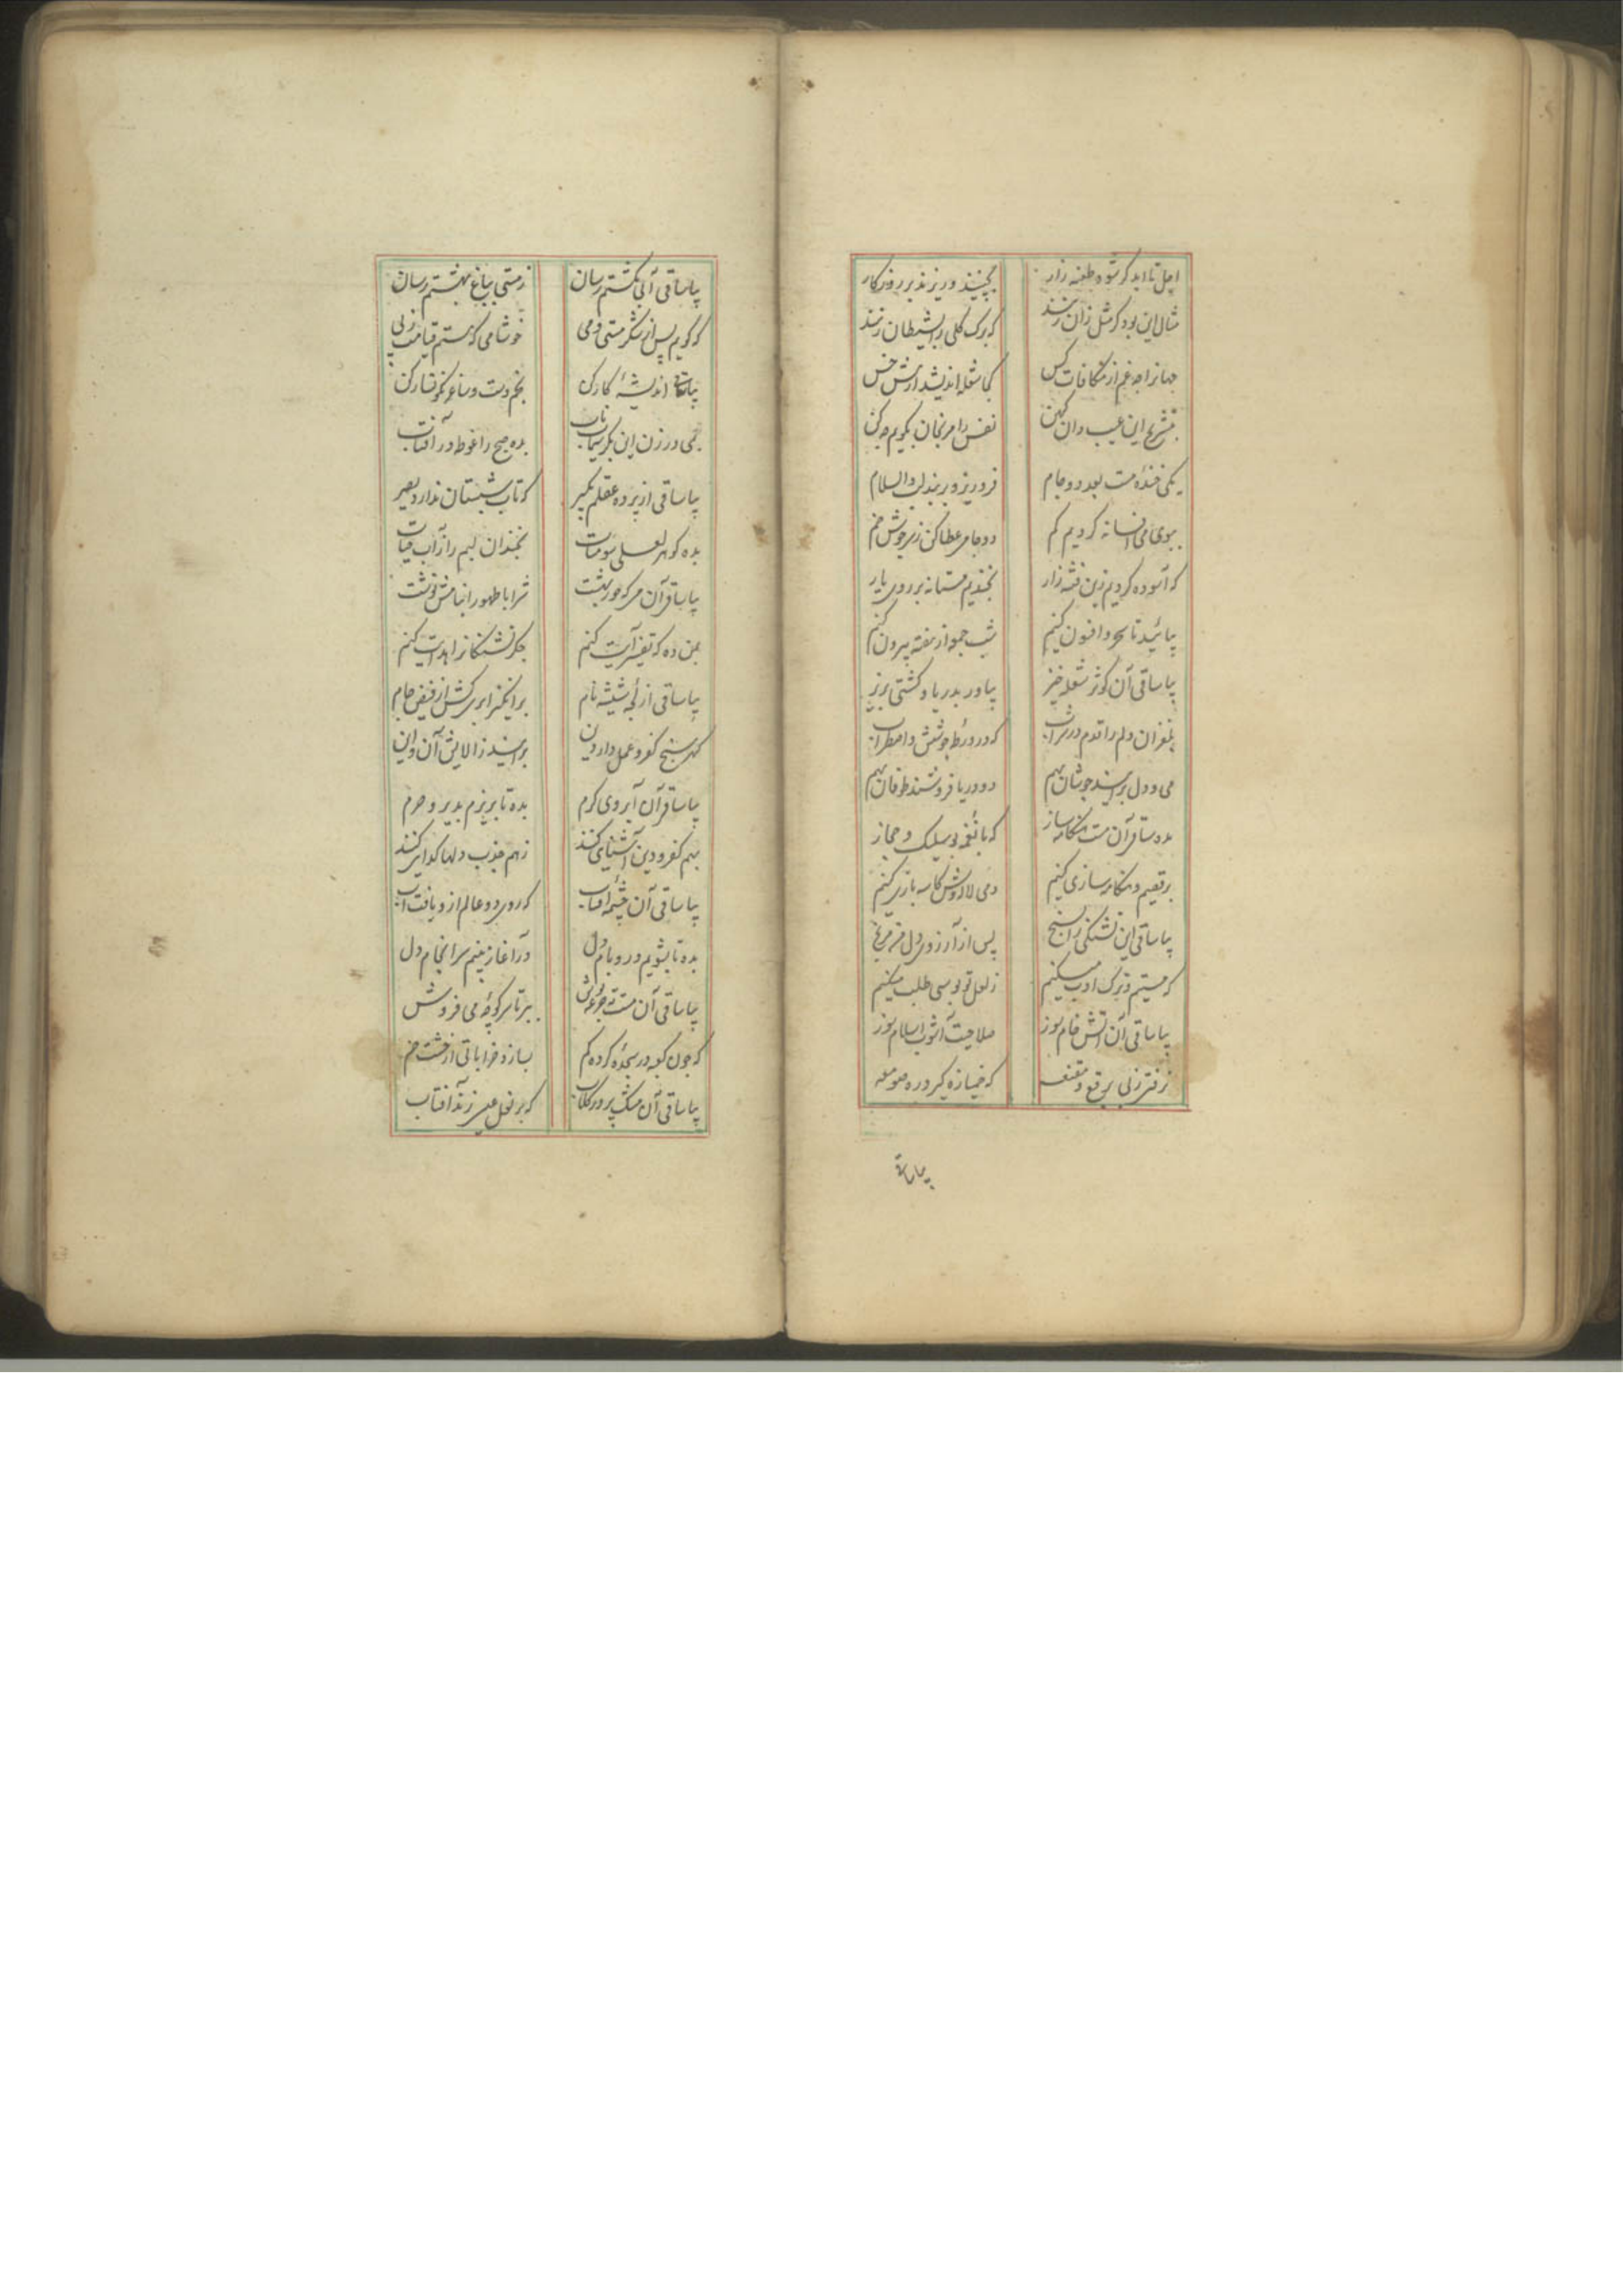 اجل تا ابد گر شود طعنه زار بچینند و ریزند بر روزگار
مثال این بود کز مثل زان زنند که برک گلی بر شیطان زنند
جهانرا چه غم از مکافات کس کجا شعله اندیشد از نیش خس
این عیب دان کهن نفس را مرنجان بگویم چه کن
یکی خندهٔ مست بعد دو جام فرو ریز و بر بند لب والسلام
ببوی می افسانه کردیم کم دو جامم عطا کن ز سرجوش خم
که آسوده کردیم زین فتنه زار بخندیم مستانه بر روی یار
بیائید تا سحر و افسون کنیم شب جمعه از هفته بیرون کنیم
بیا ساقی آن کوثر شعله خیز بیاور بدریا و کشتی بریز
بلغزان دلم را قدم در شراب که در ورطهٔ جوشش و اضطراب
می و دل برآیند جوشان بهم دو دریا فروشند طوفان بهم
بده ساقی آن مست هنگامه ساز که با نغمه و سیلک و حجاز
برقصیم و هنگامه سازی کنیم دمی لااروش کاسه بازی کنیم
بیا ساقی این تشنگی را بسنج پس از آرزوی دل مرنج
که مستیم و ترک ادب میکنیم ز لعل تو بوسی طلب میکنیم
بیا ساقی آن آتش خام سوز صلاحیت آشوب اسلام سوز
ز فتر زنی برقع و مقنعه که خمیازه گیر در صومعه
بیا ساقی
بیا ساقی آبی بکشتم رسان ز مستی بباغ بهشتم رسان
که گویم پس از شکر مستی و می خوشا می که مستم قیامت ز پی
بیا ساقی اندیشهٔ کار کن بخم دست و ساغر نگونسار کن
بمی در زن این بکر سیماب ناب بده صبح را غوطه در آفتاب
بیا ساقی از پرده عقلم بگیر که تاب شبستان ندارد بصیر
بده گوهر لعلی سومنات بخندان لبم را ز آب حیات
بیا ساقی آن می که حور بهشت شرابا طهورا بنامش نوشت
بمن ده که تفسیر آیت کنم جگر تشنگانرا هدایت کنم
بیا ساقی از لجهٔ شیشه نام برانگیز ابری کش از فیض جام
گهر سنج کفر و عمل دار دین برآیند ز آلایش آن و این
بیا ساقی آن آبروی کرم بده تا بریزم بدیر و حرم
بهم کفر و دین آشنایی کنند ز هم جذب دلها گدایی کنند
بیا ساقی آن چشمهٔ آفتاب که روی دو عالم ازو یافت آب
بده تا بشویم در و بام دل در آغاز بینم سرانجام دل
بیا ساقی آن مست ته جرعه نوش ببر تا سر کوچهٔ می فروش
که چون کعبه در سجده کرده کم بسازد خراباتی از خشت خم
بیا ساقی آن مشک پرور گلاب که بر لعل میرزند آفتاب